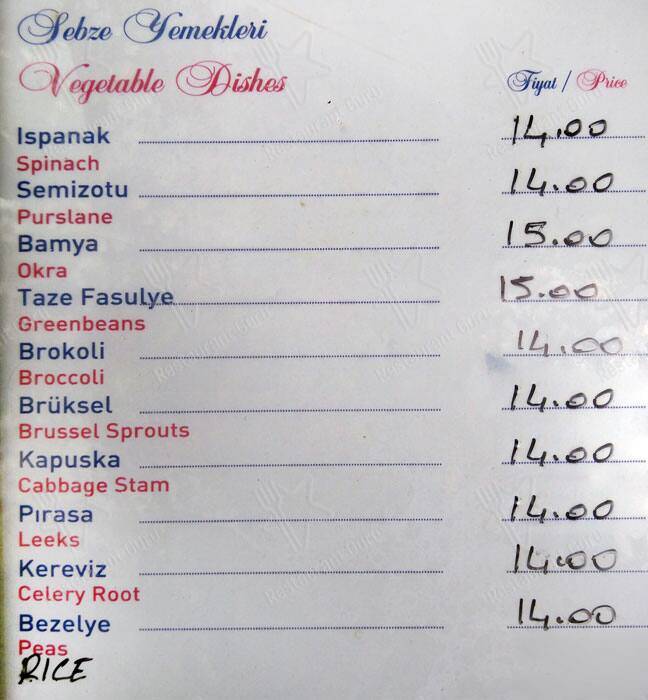 Sebze Yemekleri
Vegetable Dishes Fiyat / Price
Ispanak 14.00
Spinach
Semizotu 14.00
Purslane
Bamya 15.00
Okra
Taze Fasulye 15.00
Greenbeans
Brokoli 14.00
Broccoli
Brüksel 14.00
Brussel Sprouts
Kapuska 14.00
Cabbage Stam
Pırasa 14.00
Leeks
Kereviz 14.00
Celery Root
Bezelye 14.00
Peas
RICE